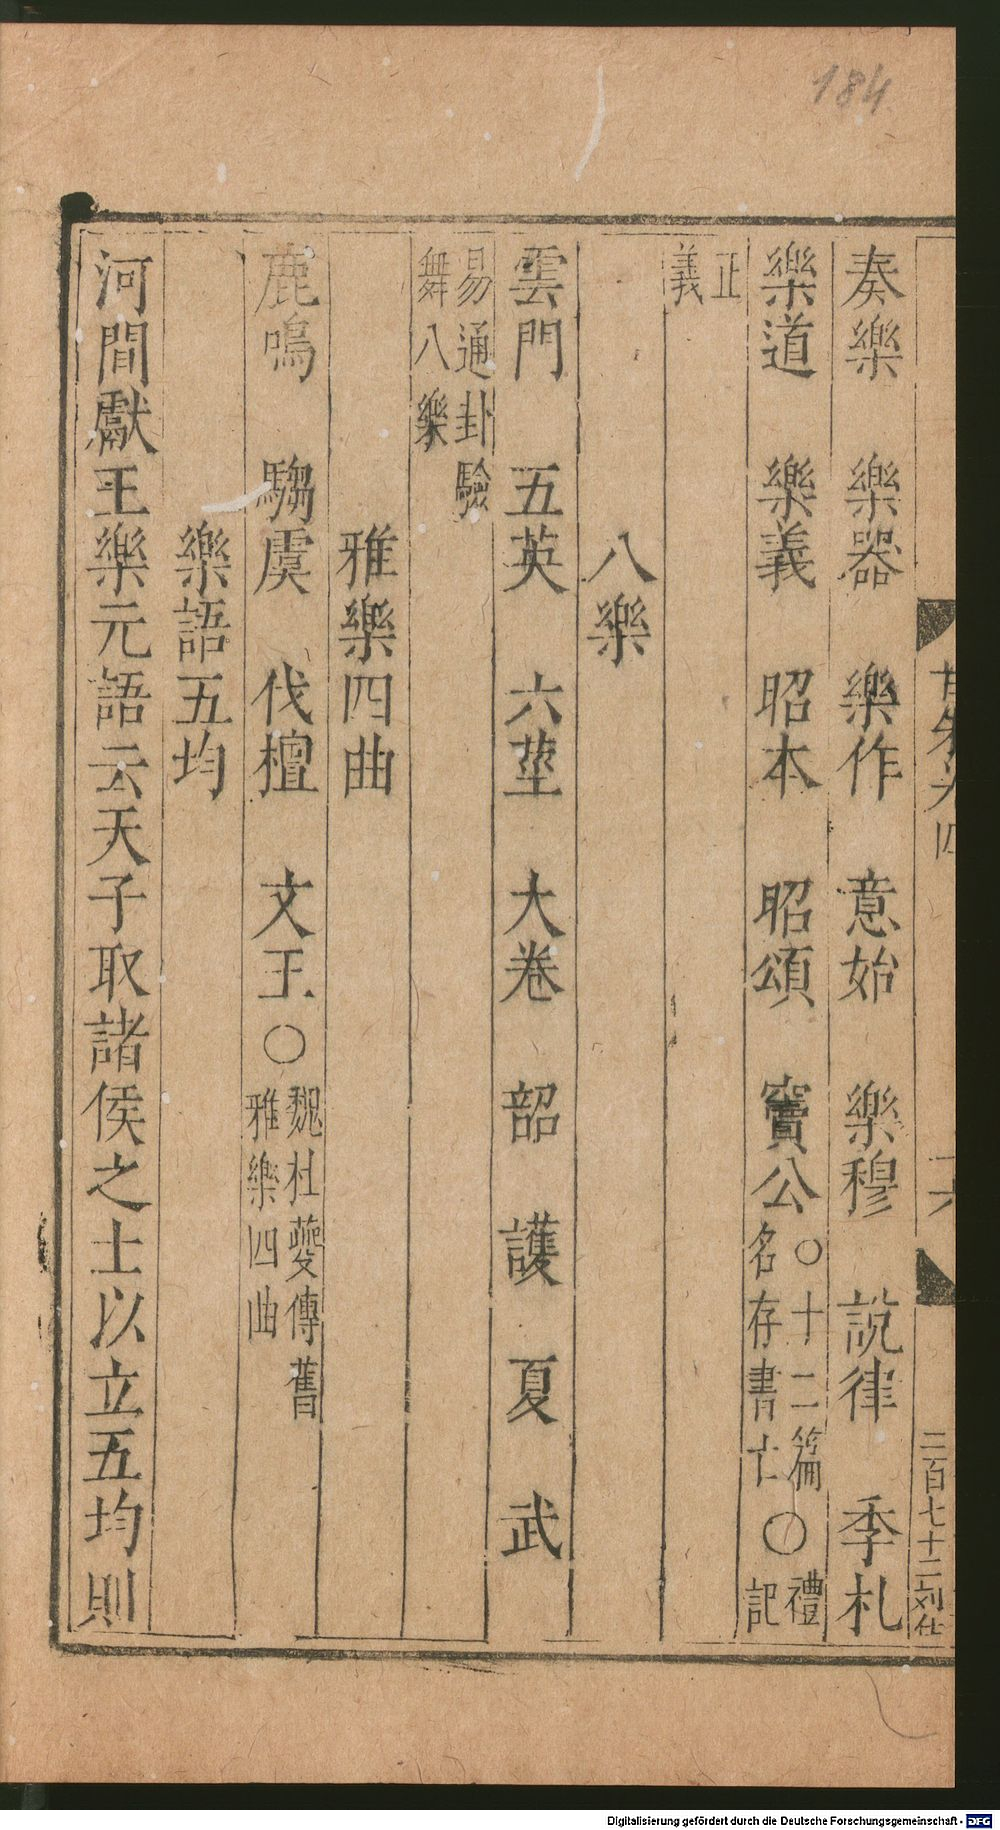 184
奏樂　樂器　樂作　意始　樂穆　說律　季札
樂道　樂義　昭本　昭頌　竇公○十二篇名存書亡○禮記
正義
八樂
雲門　五英　六莖　大卷　韶　護　夏　武
易通卦驗舞八樂
雅樂四曲
鹿鳴　騶虞　伐檀　文王○魏杜夔傳舊雅樂四曲
樂語五均
河間獻王樂元語云天子取諸侯之士以立五均則
二百七十二
Digitalisierung gefördert durch die Deutsche Forschungsgemeinschaft - DFG